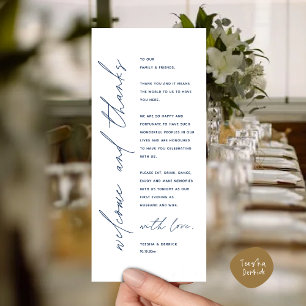 welcome and thanks
TO OUR
FAMILY & FRIENDS,
THANK YOU AND IT MEANS
THE WORLD TO US TO HAVE
YOU HERE.
WE ARE SO HAPPY AND
FORTUNATE TO HAVE SUCH
WONDERFUL PEOPLES IN OUR
LIVES AND ARE HONOURED
TO HAVE YOU CELEBRATING
WITH US.
PLEASE EAT, DRINK, DANCE,
ENJOY AND MAKE MEMORIES
WITH US TONIGHT AS OUR
FIRST EVENING AS
HUSBAND AND WIFE.
with love,
TEESHA & DERRICK
Teesha
Derrick